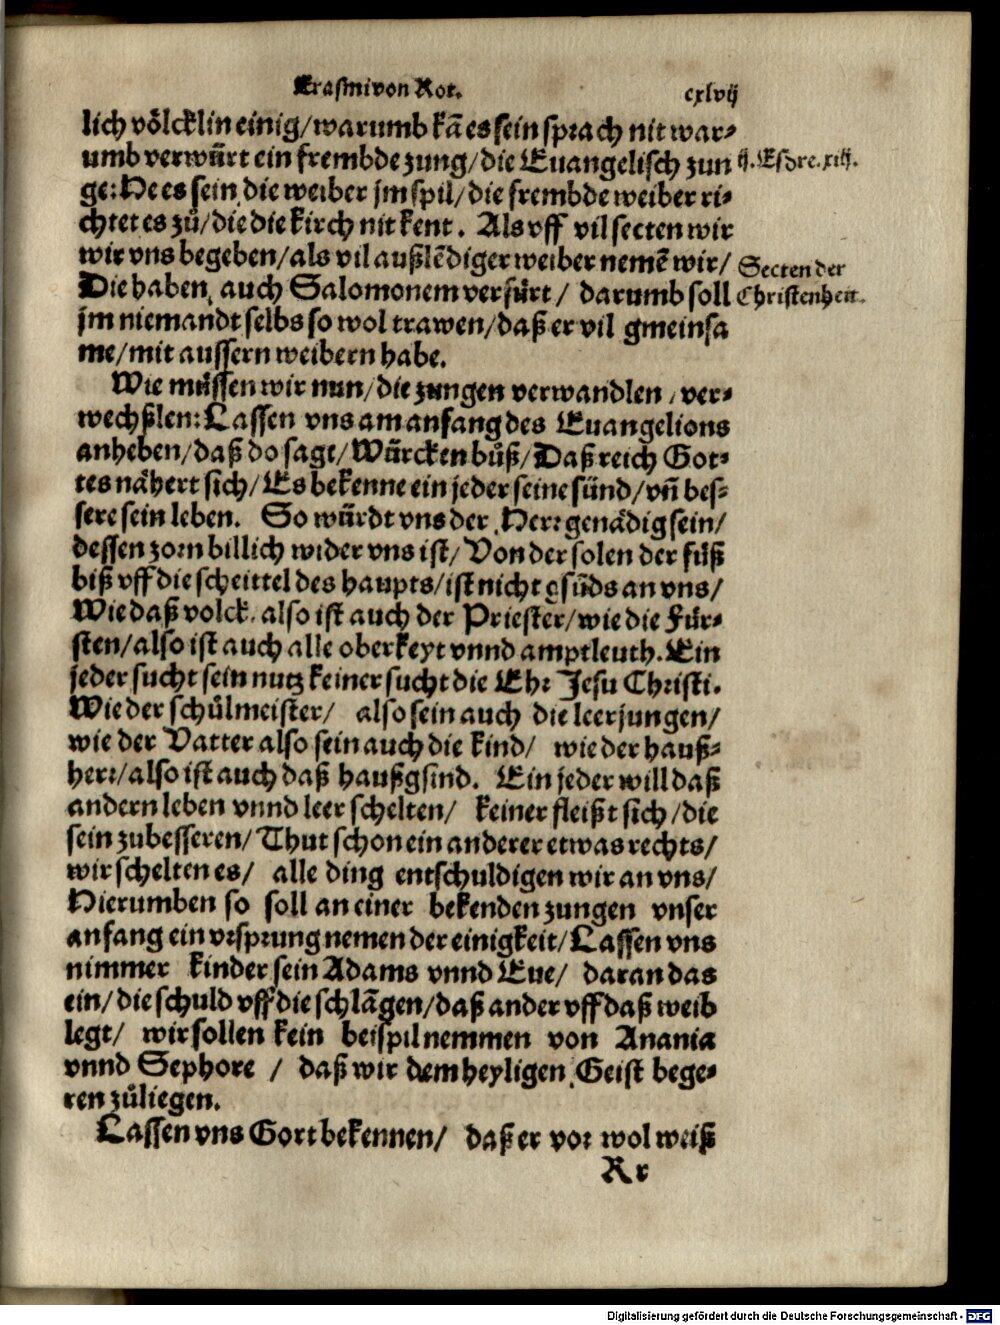 Erasmi von Rot.
cxlvij
lich vôlcklin einig/warumb kã es sein sprach nit war⸗
umb verwürt ein frembde zung/die Euangelisch zun
ij. Esdre. xiij.
ge: He es sein die weiber jm spil/die frembde weiber ri⸗
chtet es zů/die die kirch nit kent. Als vff vil secten wir
wir vns begeben/als vil außlẽdiger weiber nemẽ wir/
Secten der
Die haben, auch Salomonem verfürt/ darumb soll
Christenheit.
jm niemandt selbs so wol trawen/daß er vil gmeinsa
me/mit aussern weibern habe.
Wie müssen wir nun/die zungen verwandlen, ver⸗
wechßlen: Lassen vns am anfang des Euangelions
anheben/daß do sagt/Würcken bůß/Daß reich Got⸗
tes nähert sich/Es bekenne ein jeder seine sünd/vñ bes⸗
sere sein leben. So würdt vns der Herr genädig sein/
dessen zorn billich wider vns ist/Von der solen der füß
biß vff die scheittel des haupts/ist nicht gsũds an vns/
Wie daß volck, also ist auch der Priester/wie die Für⸗
sten/also ist auch alle oberkeyt vnnd amptleuth. Ein
jeder sucht sein nutz keiner sucht die Ehr Jesu Christi.
Wie der schůlmeister/ also sein auch die leerjungen/
wie der Vatter also sein auch die kind/ wie der hauß⸗
herr/also ist auch daß haußgsind. Ein jeder will daß
andern leben vnnd leer schelten/ keiner fleißt sich/die
sein zubesseren/Thut schon ein anderer etwas rechts/
wir schelten es/ alle ding entschuldigen wir an vns/
Hierumben so soll an einer bekenden zungen vnser
anfang ein vrsprung nemen der einigkeit/Lassen vns
nimmer kinder sein Adams vnnd Eue/ daran das
ein/die schuld vff die schlãgen/daß ander vff daß weib
legt/ wir sollen kein beispil nemmen von Anania
vnnd Sephore / daß wir dem heyligen Geist bege⸗
ren zůliegen.
Lassen vns Gott bekennen/ daß er vor wol weiß
Rr
Digitalisierung gefördert durch die Deutsche Forschungsgemeinschaft - DFG